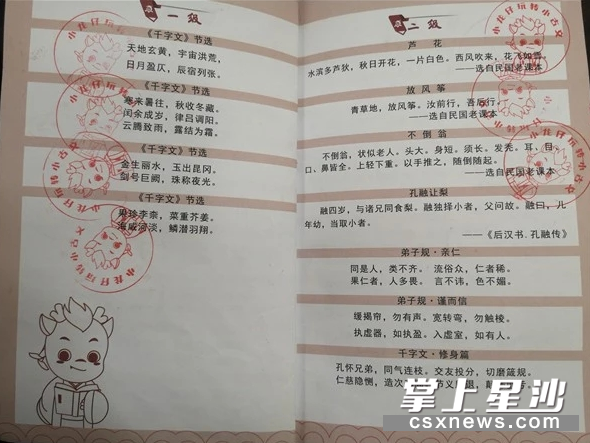 一级
《千字文》节选
天地玄黄，宇宙洪荒，
日月盈仄，辰宿列张。
《千字文》节选
寒来暑往，秋收冬藏。
闰余成岁，律吕调阳。
云腾致雨，露结为霜。
《千字文》节选
金生丽水，玉出昆冈。
剑号巨阙，珠称夜光。
《千字文》节选
果珍李柰，菜重芥姜。
海咸河淡，鳞潜羽翔。
二级
芦花
水滨多芦荻，秋日开花，一片白色。西风吹来，花飞如雪。
——选自民国老课本
放风筝
青草地，放风筝。汝前行，吾后行。
——选自民国老课本
不倒翁
不倒翁，状似老人。头大。身短。须长。发秃。耳、目、
口、鼻皆全。上轻下重。以手推之，随倒随起。
——选自民国老课本
孔融让梨
融四岁，与诸兄同食梨。融独择小者，父问故。融曰，儿
年幼，当取小者。
——《后汉书.孔融传》
弟子规·亲仁
同是人，类不齐。 流俗众，仁者稀。
果仁者，人多畏。 言不讳，色不媚。
弟子规·谨而信
缓揭帘，勿有声。宽转弯，勿触棱。
执虚器，如执盈。入虚室，如有人。
千字文·修身篇
孔怀兄弟，同气连枝。交友投分，切磨箴规。
仁慈隐恻，造次
小龙仔玩转小古文
小龙仔玩转小古文
小龙仔玩转小古文
小龙仔玩转小古文
掌上星沙
csxnews.com